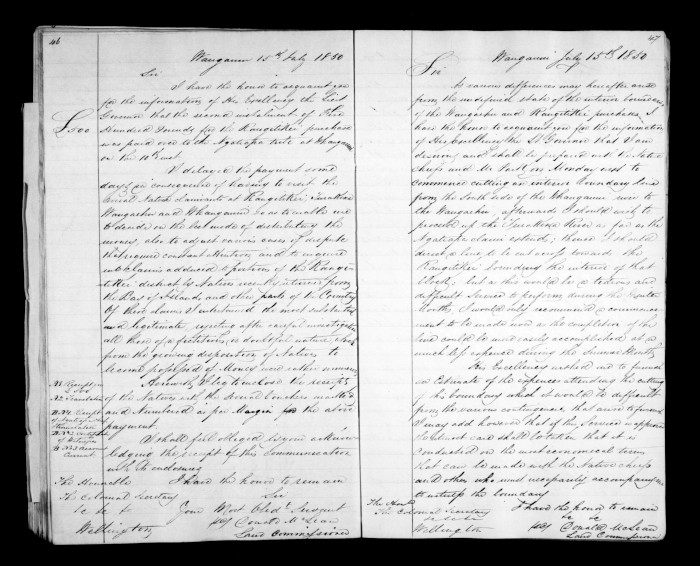 46
Wanganui 15th July 1850
Sir
I have the honor to acquaint you
for the information of His Excellency the Lieut
Governor that the second instalment of Five
£500
Hundred Pounds for the Rangitikei purchase
was paid over to the Ngatiapa tribe at Wanganui
on the 10th inst.
I delayed the payment some
days in consequence of having to visit the
several Native Settlements at Rangitikei Turakina
Wangaehu and Whanganui so as to enable me
to decide on the best mode of distributing the
money, also to adjust various cases of dispute
that require constant attention and to enquire
into Claims adduced to portions of the Rangi-
tikei district by Natives newly arrived from
the Bay of Islands and other parts of the Country
Of these claims I entertained the most substantial
and legitimate, rejecting after careful investigation
all those of a fictitious or doubtful nature,
from the growing disposition of Natives to
become possessed of Money and other
Herewith I beg to enclose the receipts
of the Natives with the several Vouchers
and Numbered as per Margin for the above
payment.
No 1 Receipt for
£500
No 2 Translation
No 4 Receipt
Translated
of Witnesses
Account
Current
I shall feel obliged by your acknow-
ledging the receipt of this Communication
with its enclosures
The Honorable
I have the honor to remain
The Colonial Secretary
Sir
&c &c &
Your Most Obdt Servant
Wellington
Donald McLean
Land Commissioner
47
Wanganui July 15th 1850
Sir
As various differences may hereafter arise
from the undefined state of the interior boundary
of the Wangaehu and Rangitikei purchase I
have the honor to acquaint you for the information
of His Excellency the Lt Governor that I am
desirous and shall be prepared with the Native
Chiefs and Mr Park on Monday next to
commence cutting an interior boundary line
from the South side of the Whanganui river to
the Wangaehu, afterwards I should wish to
proceed up the Turakina River as far as the
Ngatiapa claim extends; thence I should
direct a line to be cut across towards the
Rangitikei bounding the interior of that
block, but as this would be a tedious and
difficult service to perform during the Winter
Months, I would only recommend a commence-
ment to be made now as the completion of the
line could be more easily accomplished at a
much less expense during the Summer Months.
His Excellency wished me to furnish
an Estimate of the expenses attending the cutting
of this boundary which it would be difficult
from the various contingencies that arise to furnish
I may add however that if this Service is approved
the utmost care shall be taken that it is
conducted on the most economical terms
that can be made with the Native chiefs
and others who must necessarily accompany me
to settle the boundary
The Honble
I have the honor to remain
The Colonial Secretary
&c &c
Wellington
Donald McLean
Land Commissioner